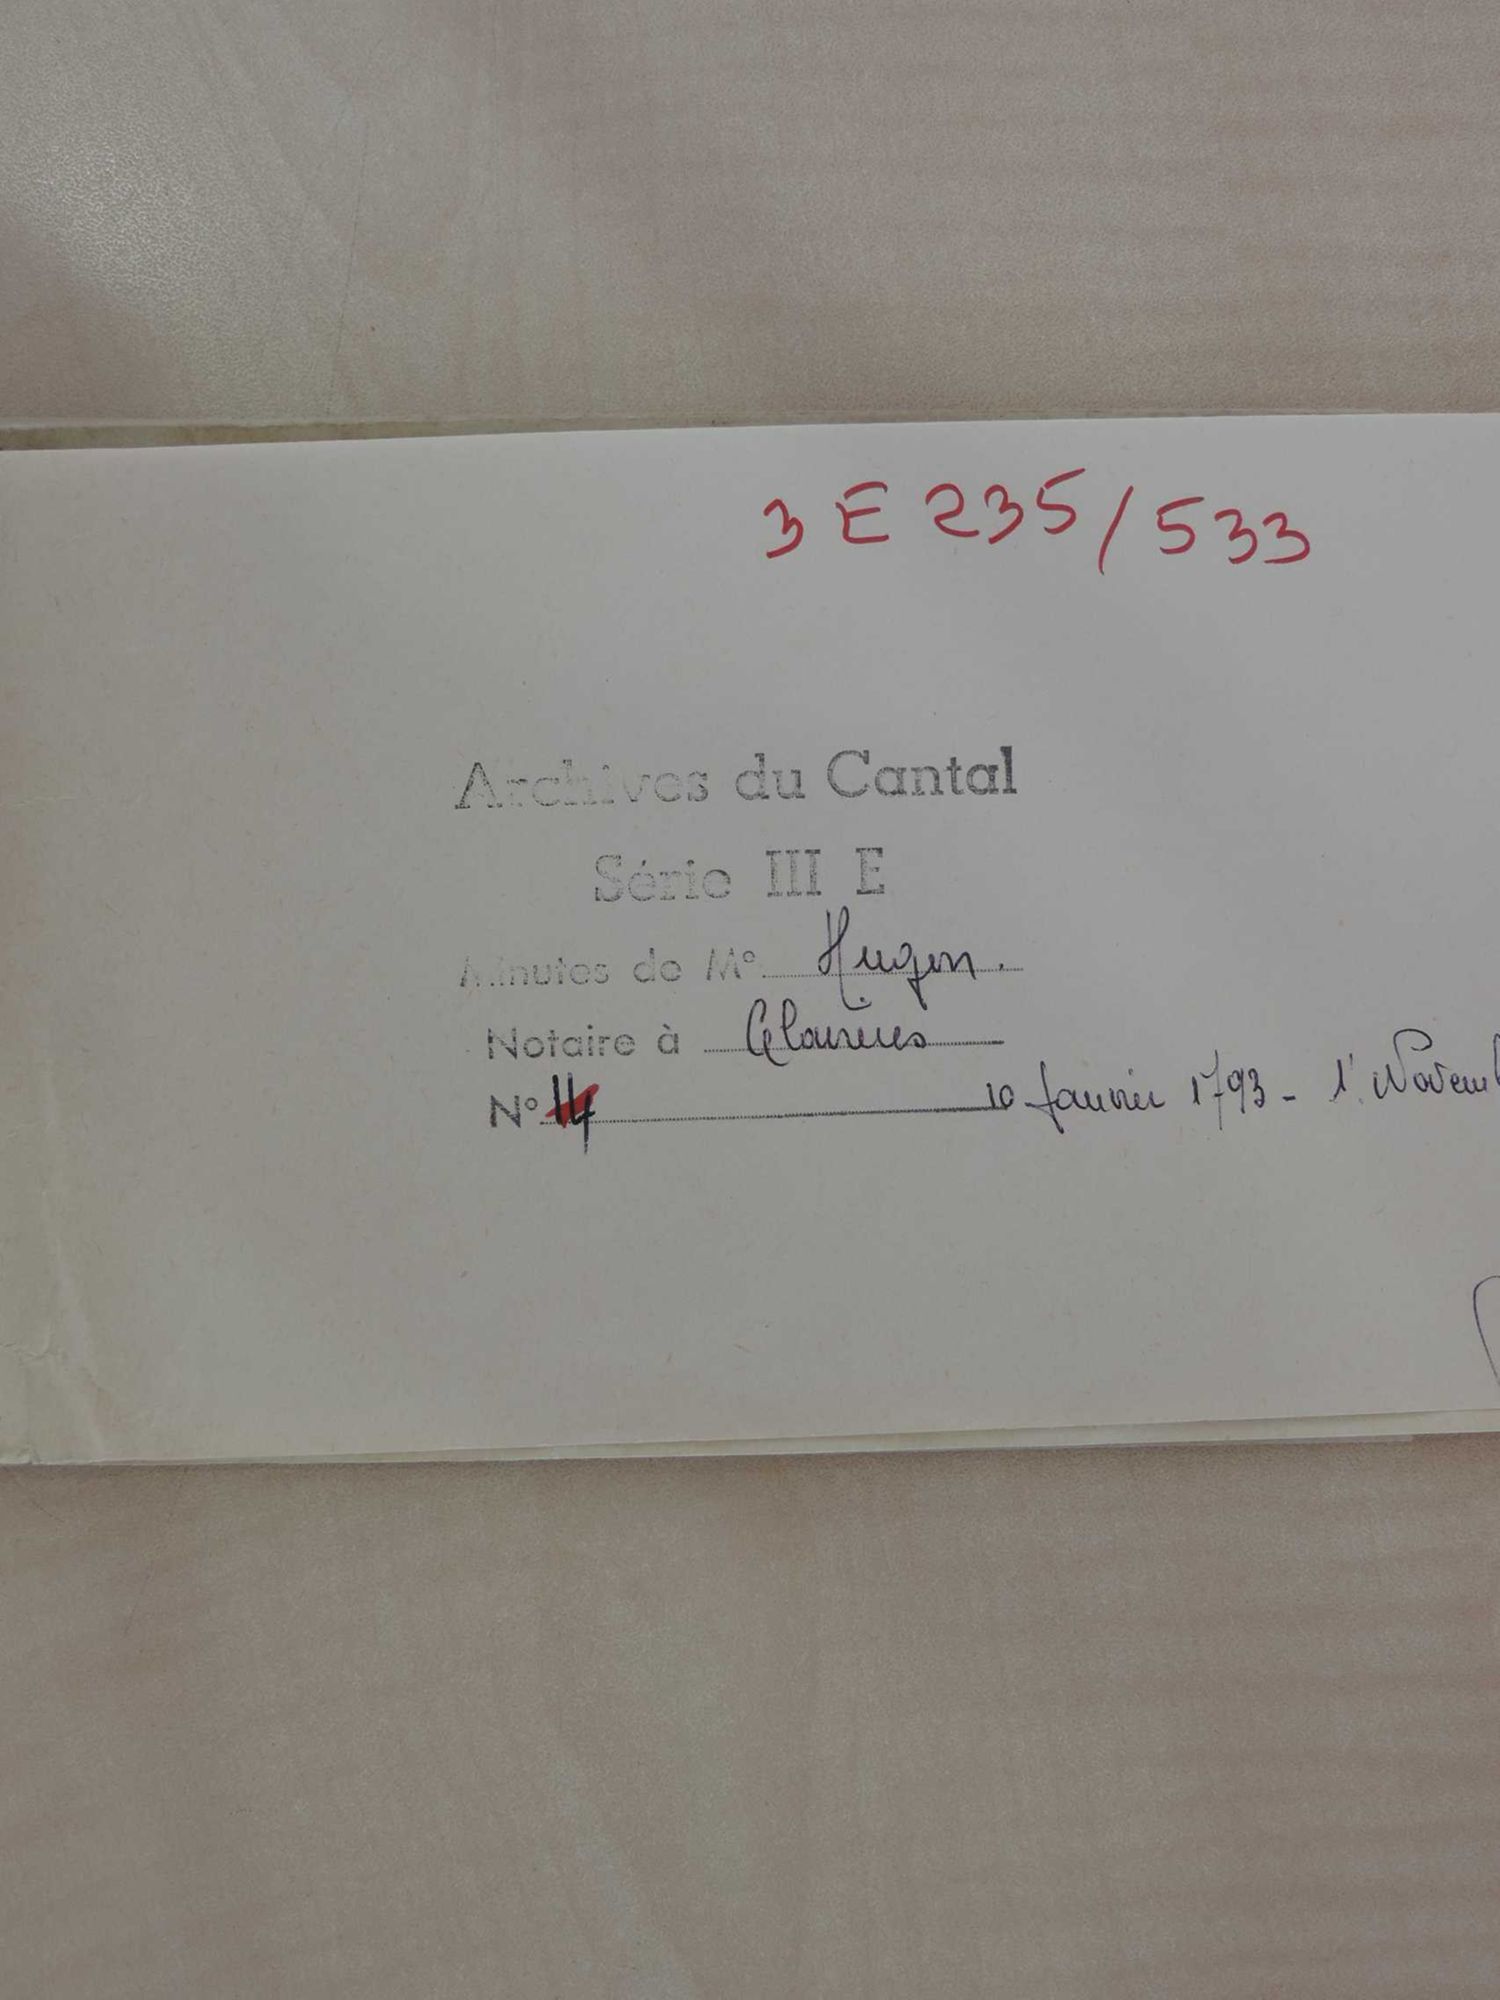 3 E 235/533
Archives du Cantal
Série III E
Minutes de Me Hugon.
Notaire à
N° 14 10 Janvier 1793 - 1er Novem